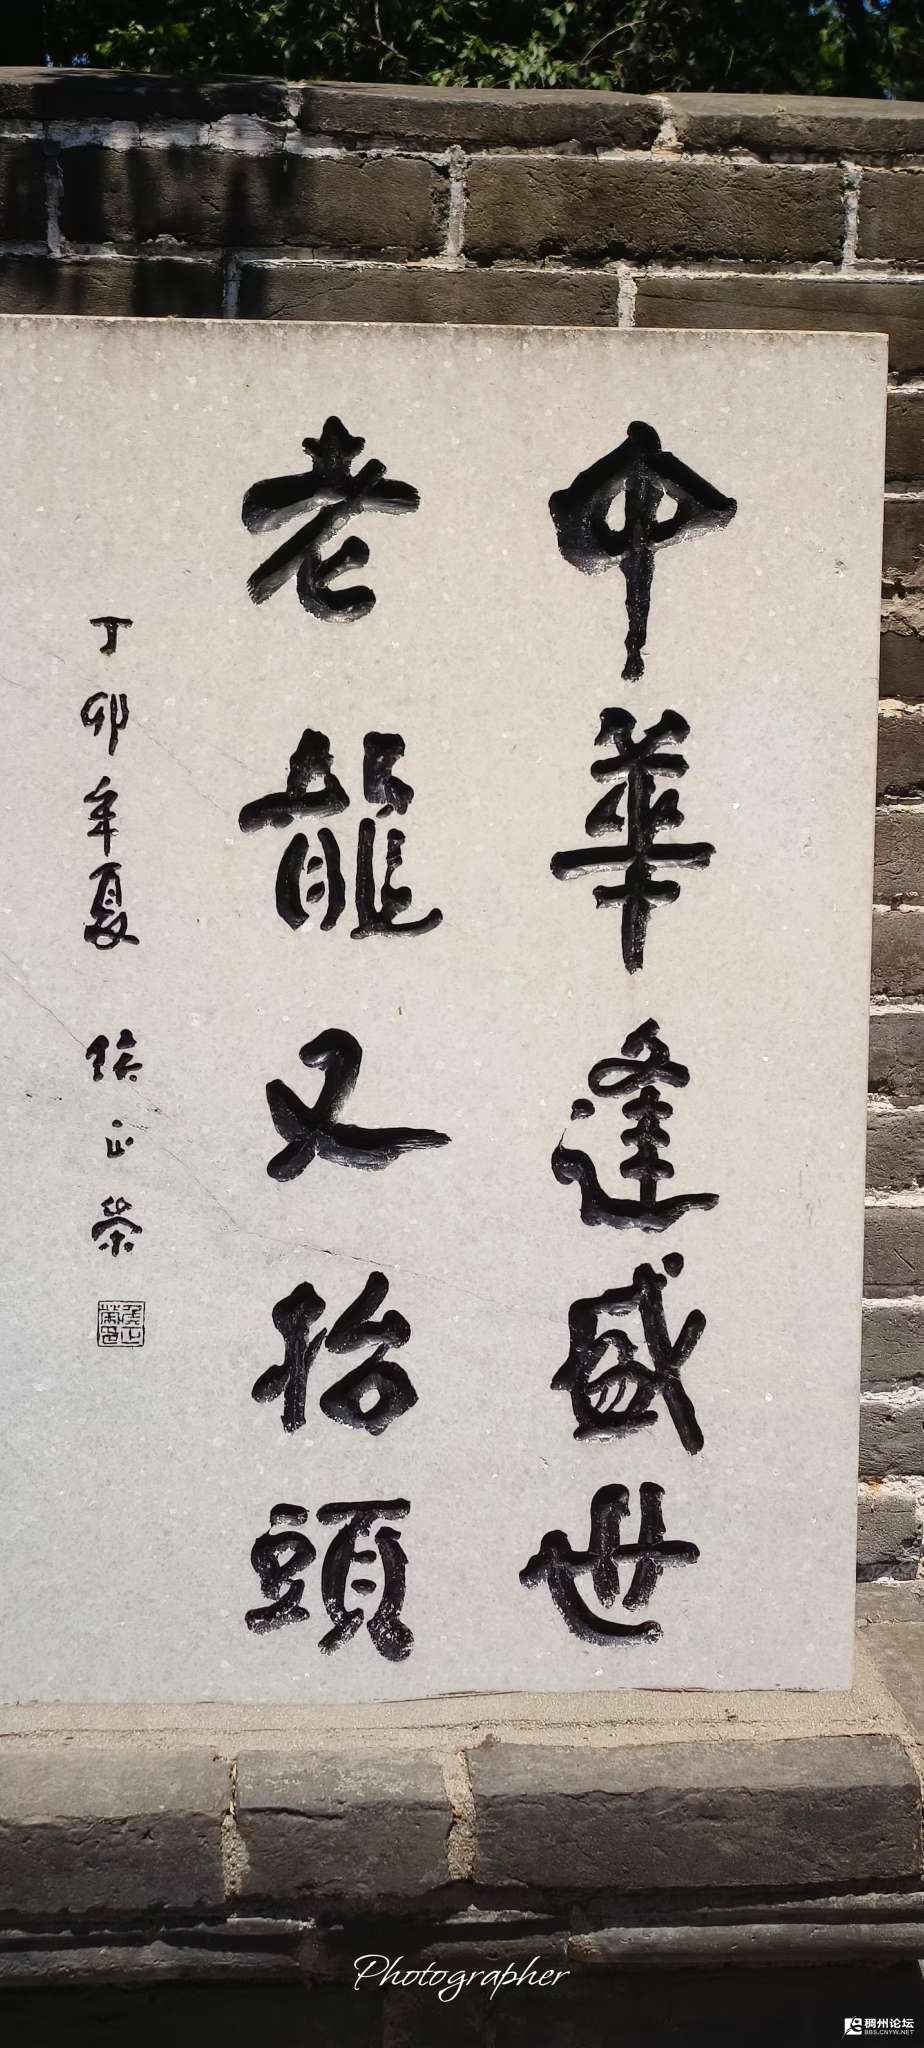 中華逢盛世
老龍又抬頭
丁卯年夏 正榮
Photographer
稠州论坛
BBS.CNYW.NET